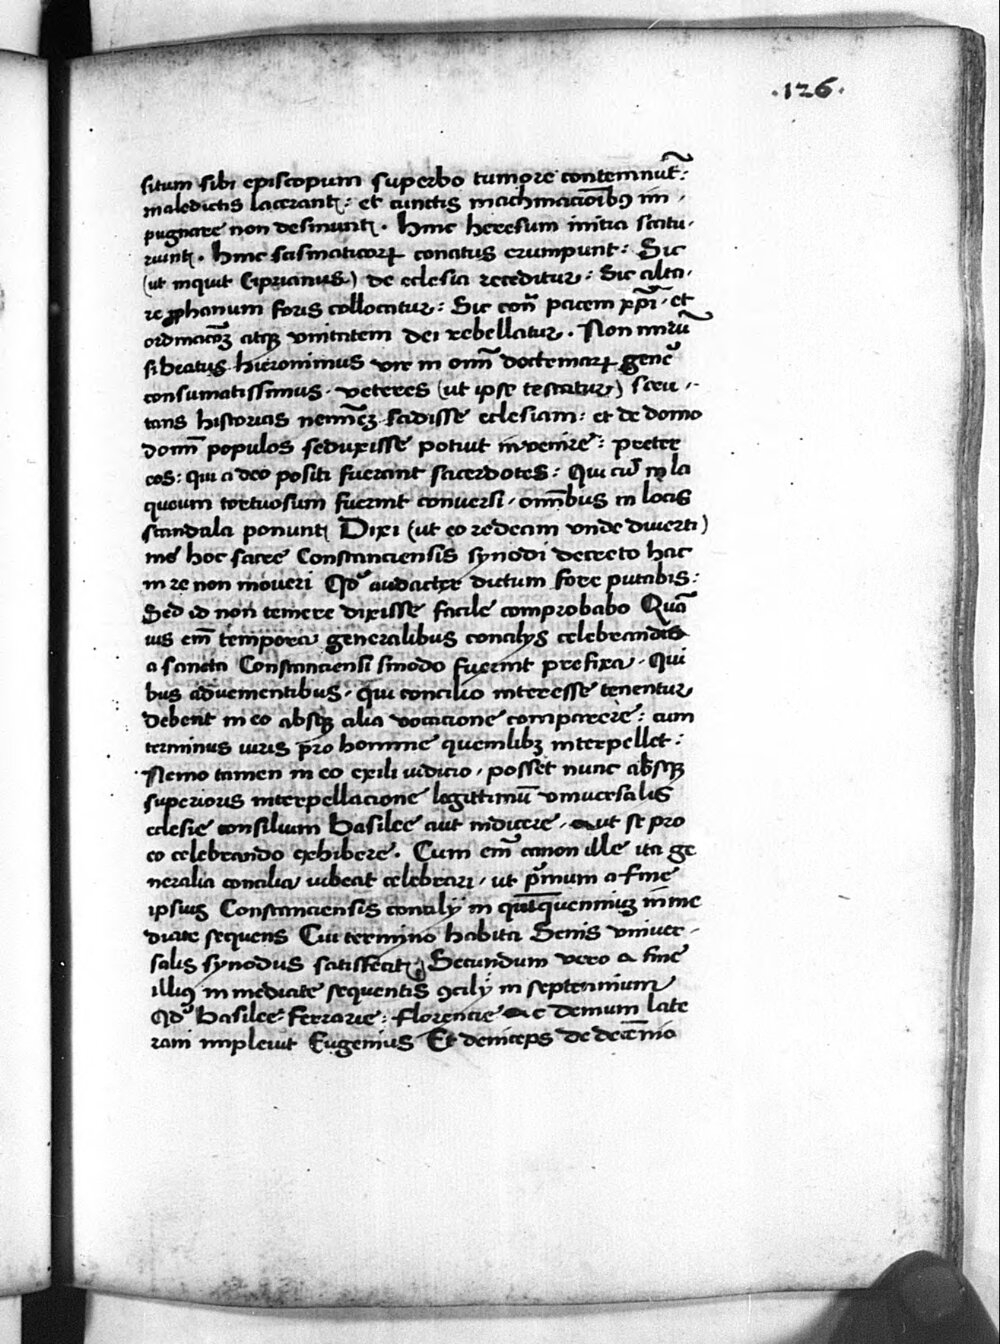 ·126·
situm sibi episcopum superbo tumore contemnūt:
maledictis lacerantꝭ: et cunctis machinacōibꝯ im
pugnare non desinuntꝭ. hinc heresum initia scatu-
riuntꝭ. hinc scismaticorꝝ conatus erumpunt: Sic
(ut inquit Ciprianus) de eclesia receditur: Sic alta-
re ꝓphanum foris collocatur: Sic conᷓ pacem xp̄i et
ordinacōꝫ atqꝫ vnitatem dei rebellatur. Non mirū
si beatus hieronimus vir in omī doctrinarꝝ genē
consumatissimus veteres (ut ipse testatur) scru-
tans historias neminēꝫ scidisse eclesiam: et de domo
domī populos seduxisse potuit invenire: preter
eos: qui a deo positi fuerant sacerdotes: Qui cū in la
queum tortuosum fuerint conversi omībus in locis
scandala ponuntꝭ Dixi (ut eo redeam unde diverti)
me hoc sacre Constanciensis synodi decreto hac
in re non moveri Qd̄ audacter dictum fore putabis:
Sed id non temere dixisse facile comprobabo Quā
uis em̄ tempora generalibus concilys celebrandis
a sancta Constanciensi sinodo fuerint prefixa. Qui
bus advenientibus, qui concilio interesse tenentur
debent in eo absqꝫ alia vocacione comparere: cum
terminus iuris pro homine quemlibꝫ interpellet:
Nemo tamen in eo exili iudicio, posset nunc absqꝫ
superioris interpellacione legittimū vniversalis
eclesie consilium Basilee aut indicere, aut se pro
eo celebrando exhibere. Cum em̄ canon ille ita ge
neralia concilia iubeat celebrari, ut p̄mum a fine
ipsius Constanciensis concilÿ in quīquenniuꝫ inme
diate sequens Cui termino habita Senis vniver-
salis synodus satisfecit Secundum vero a fine
illiꝯ inmediate sequentis ꝯcilÿ in septennium
Qd̄ Basilee Ferrarie: Florencie ac demum late
rani implevit Eugenius Et deinceps de decēnio